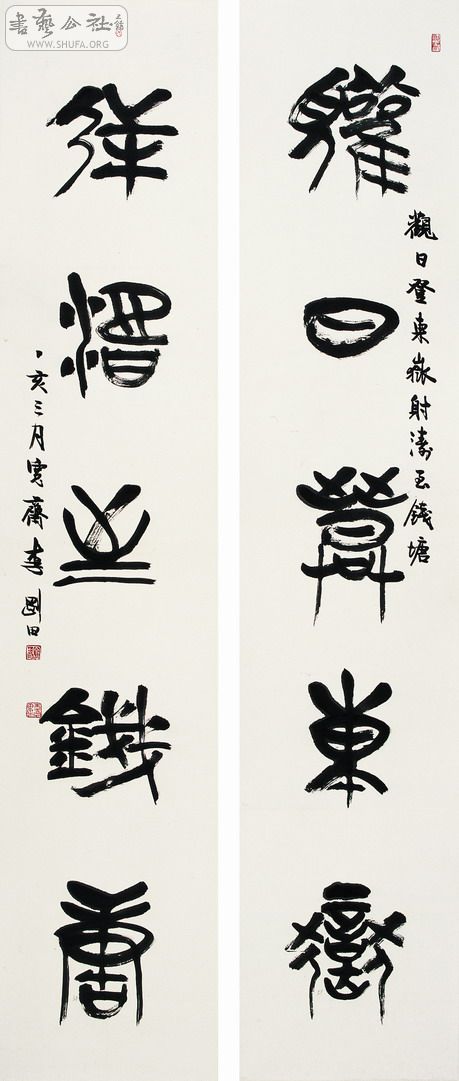 書藝公社
WWW.SHUFA.ORG
觀日登東嶽
觀日登東嶽射濤至錢塘
射濤至錢唐
丁亥三月寬齋李剛田